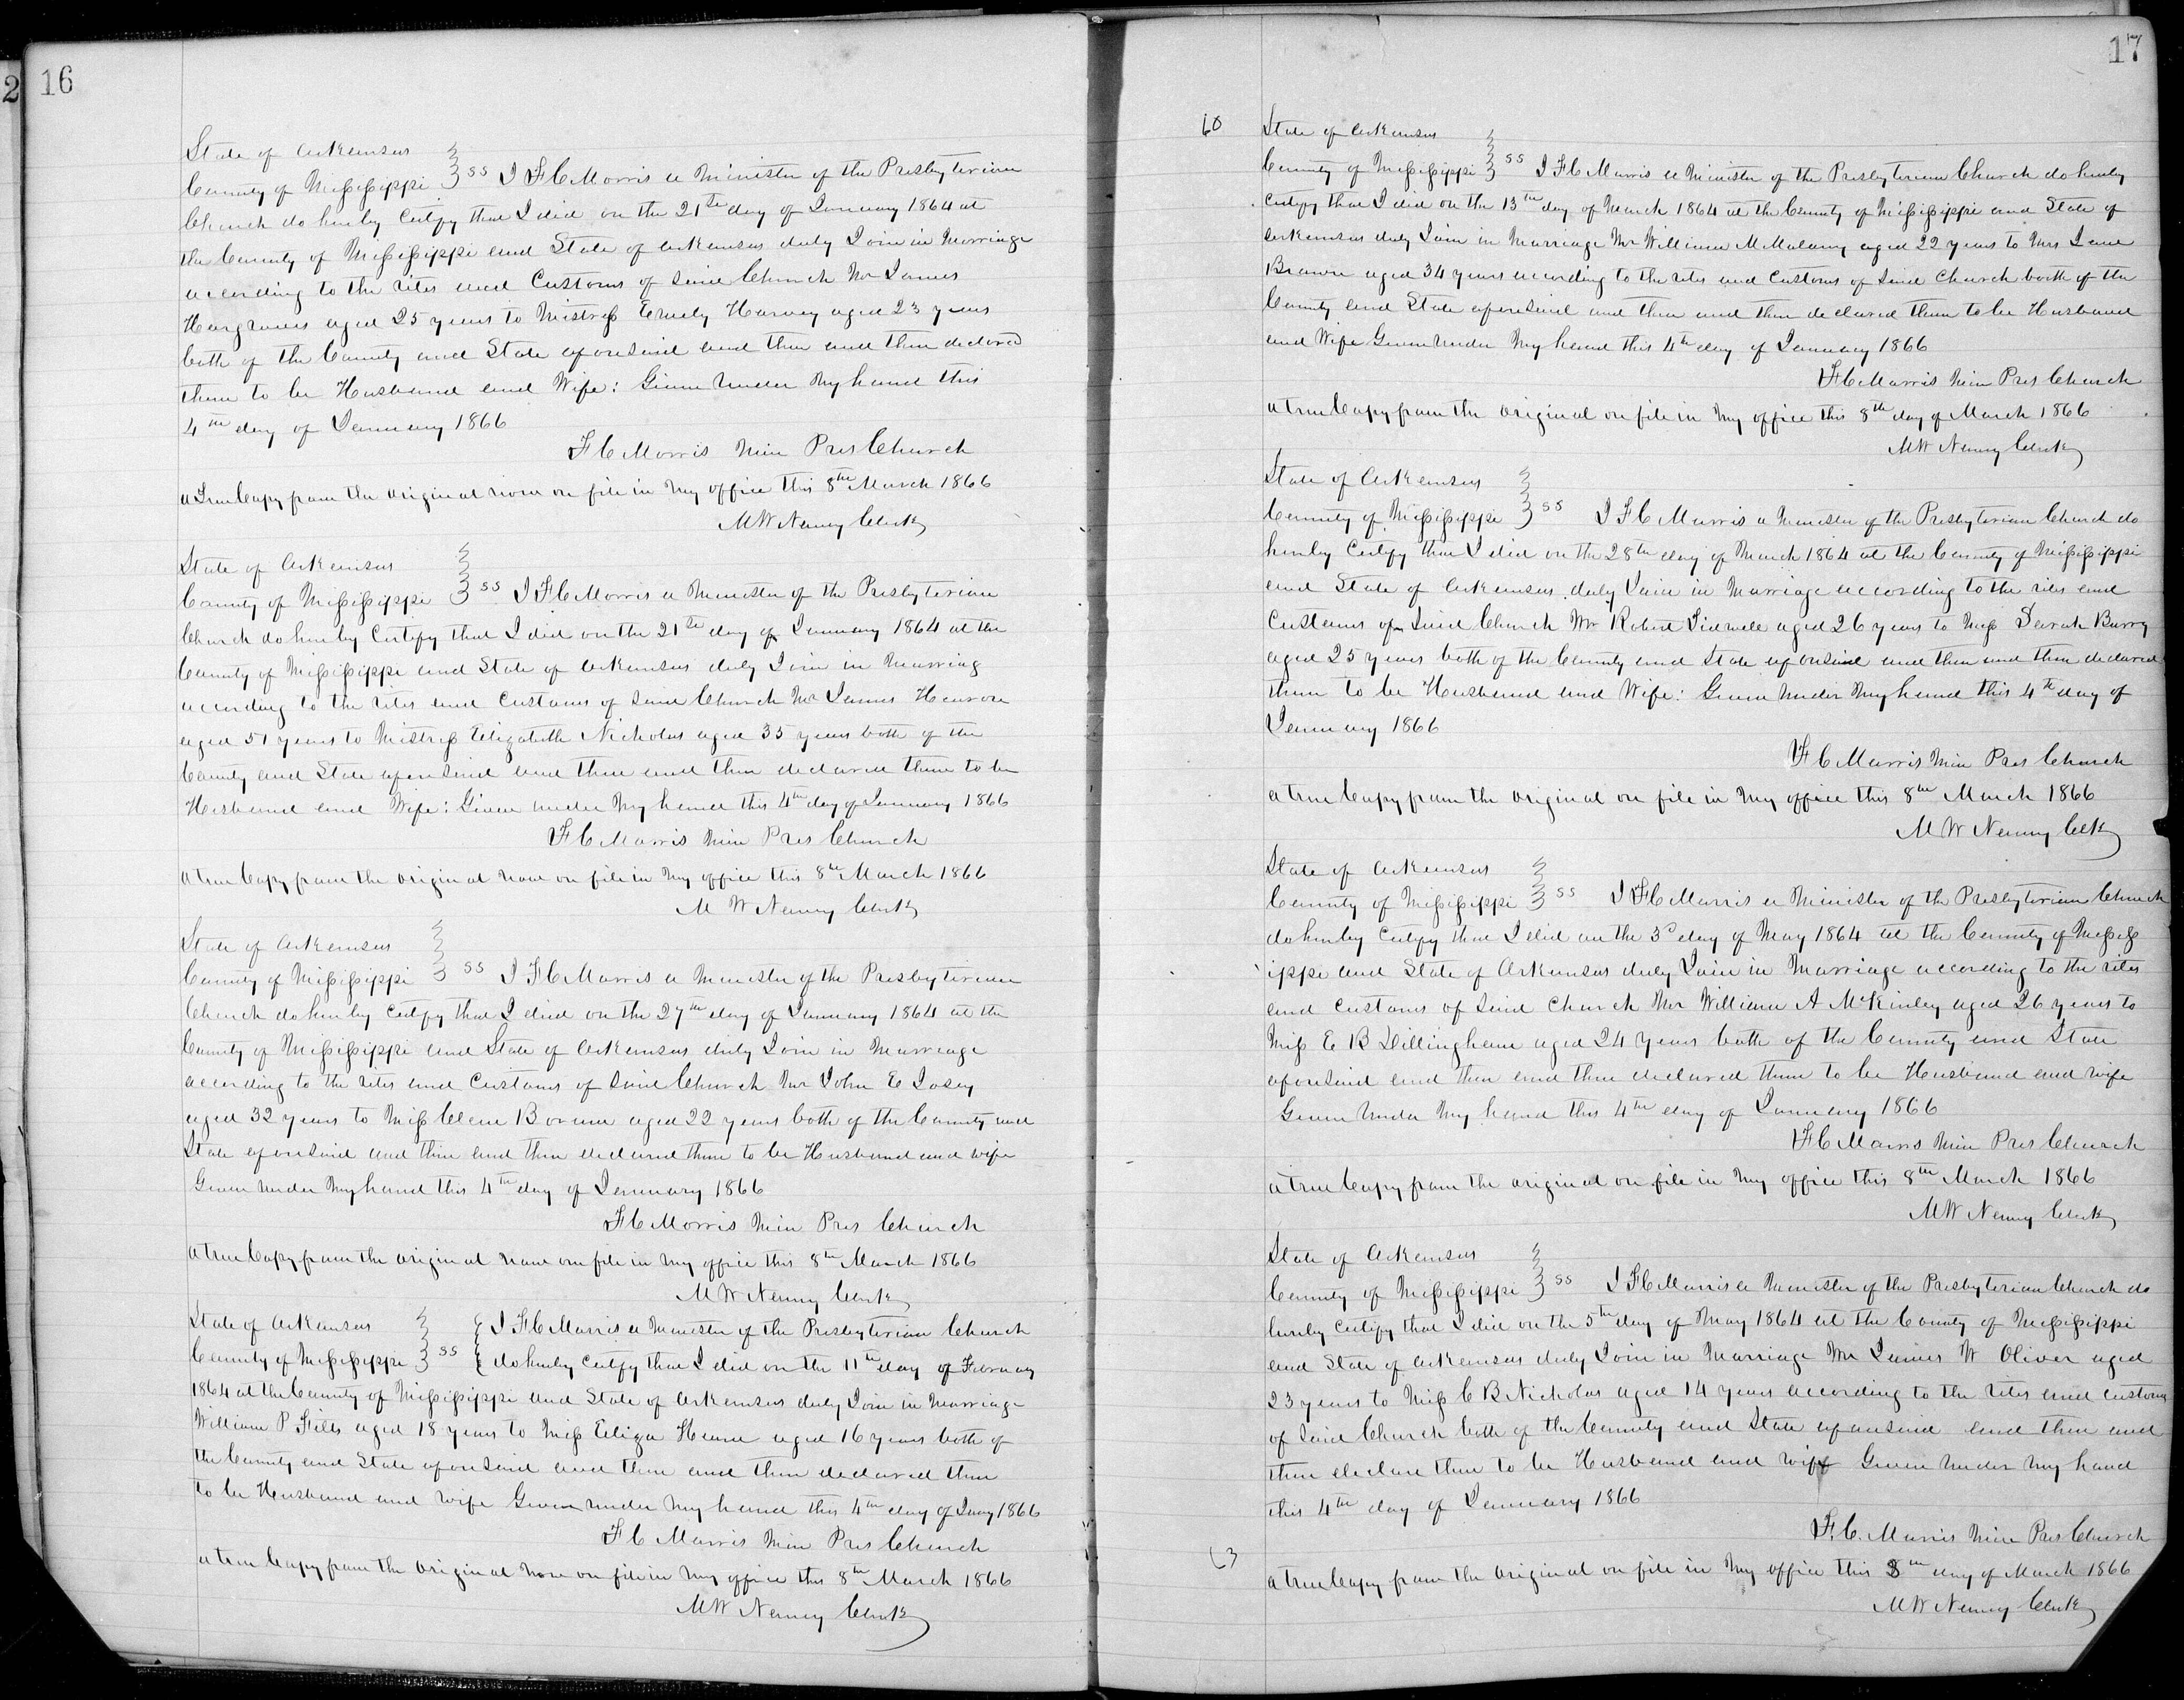 2
16
State of Arkansas
County of Mississippi } ss I F C Morris a Minister of the Presbyterian
Church do hereby Certify that I did on the 21st day of January 1864 at
the County of Mississippi and State of Arkansas duly Join in Marriage
according to the rites and Customs of Said Church Mr James
Hargraves aged 25 years to Mistress Emely Harvey aged 23 years
both of the County and State aforesaid and then and there declared
them to be Husband and Wife: Given under My hand this
4th day of January 1866
F C Morris Min Pres Church
a True Copy from the Original now on file in My office this 8th March 1866
M W Nenny Clerk
State of Arkansas
County of Mississippi } ss I F C Morris a Minister of the Presbyterian
Church do hereby Certify that I did on the 21st day of January 1864 at the
County of Mississippi and State of Arkansas duly Join in Marriag
according to the rites and Customs of Said Church Mr James
aged 51 years to Mistress Elizabeth Nicholas aged 35 years both of the
County and State aforesaid and then and there declared them to be
Husband and Wife: Given under My hand this 4th day of January 1866
F C Morris Min Pres Church
a true Copy from the original now on file in My office this 8th March 1866
M W Nenny Clerk
State of Arkansas
County of Mississippi } ss I F C Morris a Minister of the Presbyterian
Church do hereby Certify that I did on the 27th day of January 1864 at the
County of Mississippi and State of Arkansas duly Join in Marriage
according to the rites and Customs of Said Church Mr John E
aged 32 years to Miss aged 22 years both of the County and
State aforesaid and then and there declared them to be Husband and wife
Given under My hand this 4th day of January 1866
F C Morris Min Pres Church
a true Copy from the original now on file in My office this 8th March 1866
M W Nenny Clerk
State of Arkansas } { I F C Morris a Minister of the Presbyterian Church
County of Mississippi } ss { do hereby Certify that I did on the 11th day of
1864 at the County of Mississippi and State of Arkansas duly Join in Marriage
William P aged 18 years to Miss Eliza aged 16 years both of
the County and State aforesaid and then and there declared them
to be Husband and wife Given under My hand this 4th day of Jany 1866
F C Morris Min Pres Church
a true Copy from the Original now on file in My office this 8th March 1866
M W Nenny Clerk
17
60
State of Arkansas
County of Mississippi } ss I F C Morris a Minister of the Presbyterian Church do hereby
Certify that I did on the 13th day of March 1864 at the County of Mississippi and State of
Arkansas duly Join in Marriage Mr William aged 22 years to Mrs Jane
Brown aged 34 years according to the rites and Customs of Said Church both of the
County and State aforesaid and then and there declared them to be Husband
and Wife Given under My hand this 4th day of January 1866
F C Morris Min Pres Church
a true Copy from the Original on file in My office this 8th day of March 1866
M W Nenny Clerk
State of Arkansas
County of Mississippi } ss I F C Morris a Minister of the Presbyterian Church do
hereby Certify that I did on the 28th day of March 1864 at the County of Mississippi
and State of Arkansas duly Join in Marriage according to the rites and
Customs of Said Church Mr Robert Sidwell aged 26 years to Miss Sarah Barry
aged 25 years both of the County and State aforesaid and then and there declared
them to be Husband and Wife: Given under My hand this 4th day of
January 1866
F C Morris Min Pres Church
a true Copy from the Original on file in My office this 8th March 1866
M W Nenny Clk
State of Arkansas
County of Mississippi } ss I F C Morris a Minister of the Presbyterian Church
do hereby Certify that I did on the 3d day of May 1864 at the County of Mississ
ippi and State of Arkansas duly Join in Marriage according to the rites
and Customs of Said Church Mr William A McKinley aged 26 years to
Miss E B Dillingham aged 24 years both of the County and State
aforesaid and then and there declared them to be Husband and wife
Given under My hand this 4th day of January 1866
F C Morris Min Pres Church
a true Copy from the original on file in My office this 8th March 1866
M W Nenny Clerk
State of Arkansas
County of Mississippi } ss I F C Morris a Minister of the Presbyterian Church do
hereby Certify that I did on the 5th day of May 1864 at the County of Mississippi
and State of Arkansas duly Join in Marriage Mr James W Oliver aged
23 years to Miss C B Nicholas aged 14 years according to the rites and customs
of Said Church both of the County and State aforesaid and then and
there declare them to be Husband and wife Given under My hand
this 4th day of January 1866
F. C. Morris Min Pres Church
63
a true Copy from the Original on file in My office this 8th day of March 1866
M W Nenny Clerk